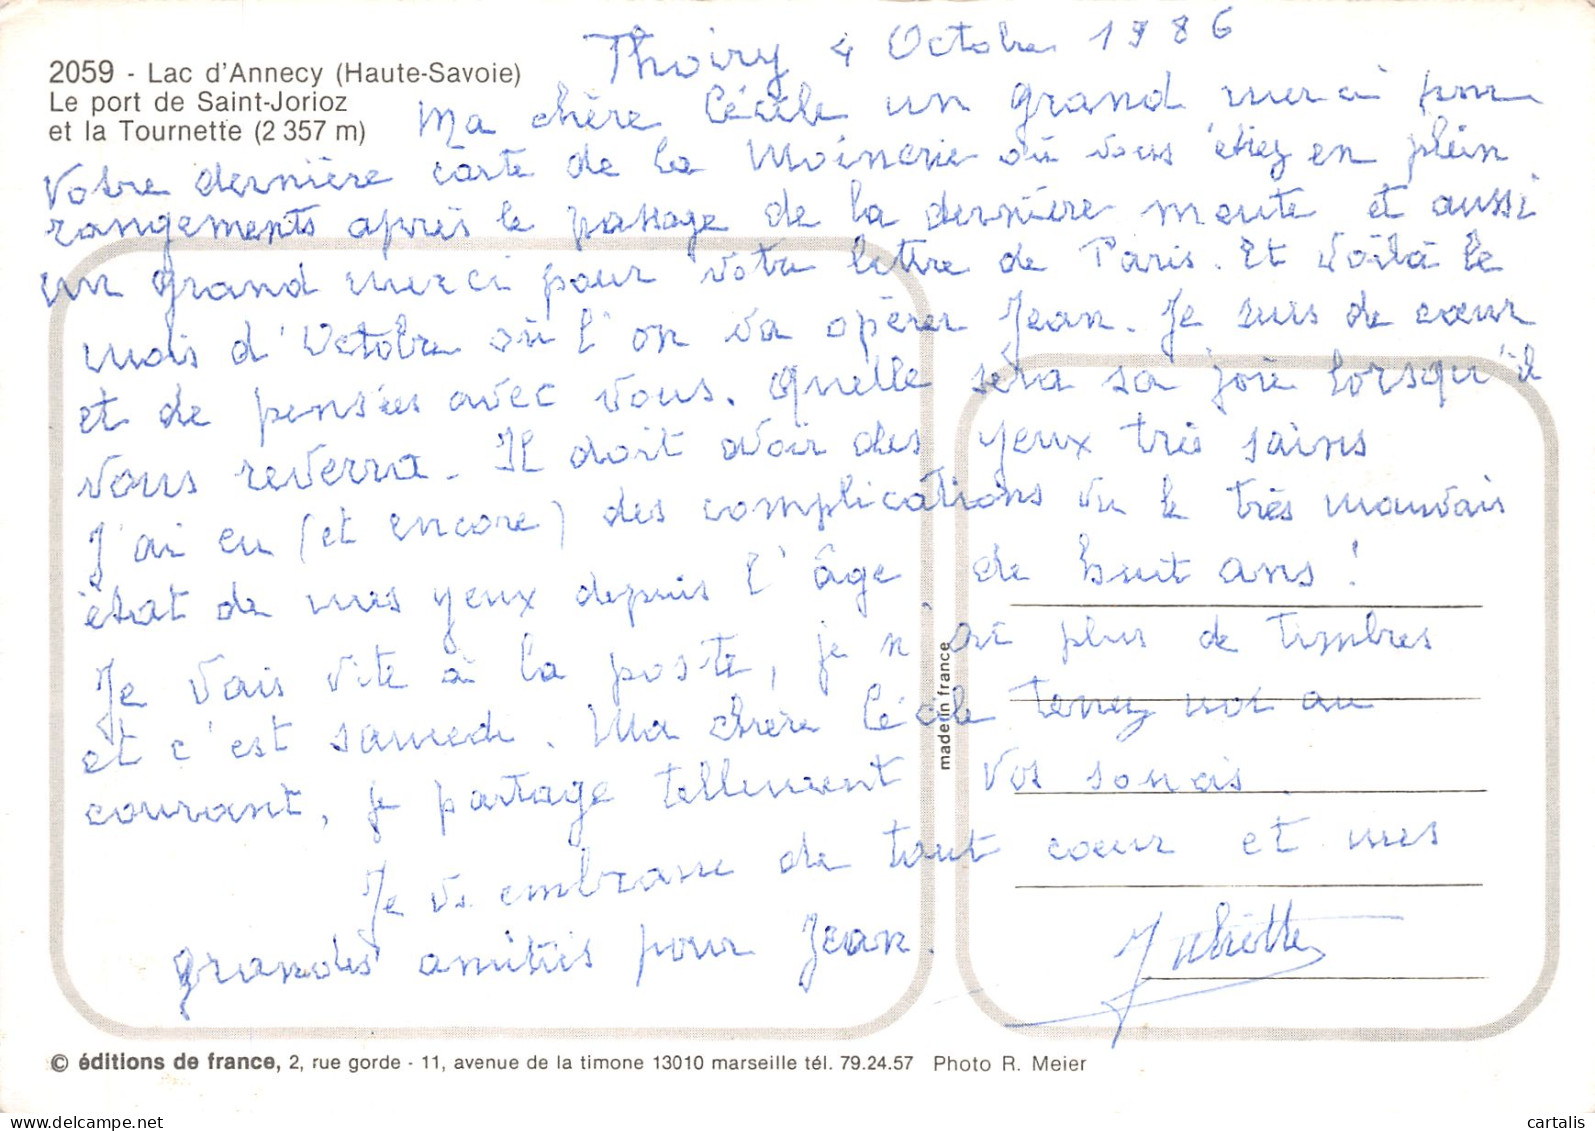 Thoiry 4 Octobre 1986
2059 - Lac d'Annecy (Haute-Savoie)
Le port de Saint-Jorioz
et la Tournette (2 357 m)
Ma chère Cécile un grand merci pour
votre dernière carte de la Moinerie où vous étiez en plein
rangements après le passage de la dernière meute et aussi
un grand merci pour votre lettre de Paris. Et voilà le
mois d'Octobre où l'on va opérer Jean. Je suis de cœur
et de pensées avec vous. Quelle sera sa joie lorsqu'il
vous reverra. Il doit avoir des yeux très sains
J'ai eu (et encore) des complications vu le très mauvais
état de mes yeux depuis l'âge de huit ans !
Je vais vite à la poste, je n'ai plus de timbres
et c'est samedi. Ma chère Cécile tenez moi au
courant, je partage tellement vos soucis.
Je vs embrasse de tout cœur et mes
grandes amitiés pour Jean.
Juliette
made in france
© éditions de france, 2, rue gorde - 11, avenue de la timone 13010 marseille tél. 79.24.57 Photo R. Meier
delcampe.net
cartalis